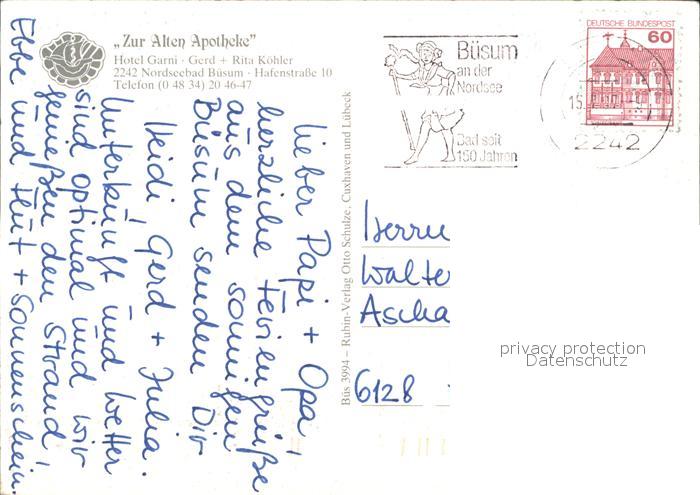 „Zur Alten Apotheke"
Hotel Garni · Gerd + Rita Köhler
2242 Nordseebad Büsum · Hafenstraße 10
Telefon (0 48 34) 20 46-47
Lieber Papi + Opa,
herzliche Feriengrüße
aus dem sonnigen
Büsum senden Dir
Heidi Gerd + Julia.
Unterkunft und Wetter
sind optimal und wir
genießen den Strand!
Ebbe und Flut + Sonnenschein.
Büs 3994 – Rubin-Verlag Otto Schulze, Cuxhaven und Lübeck
Büsum
an der
Nordsee
Bad seit
150 Jahren
DEUTSCHE BUNDESPOST
60
2242
Herrn
Walte
Ascha
6128
privacy protection
Datenschutz